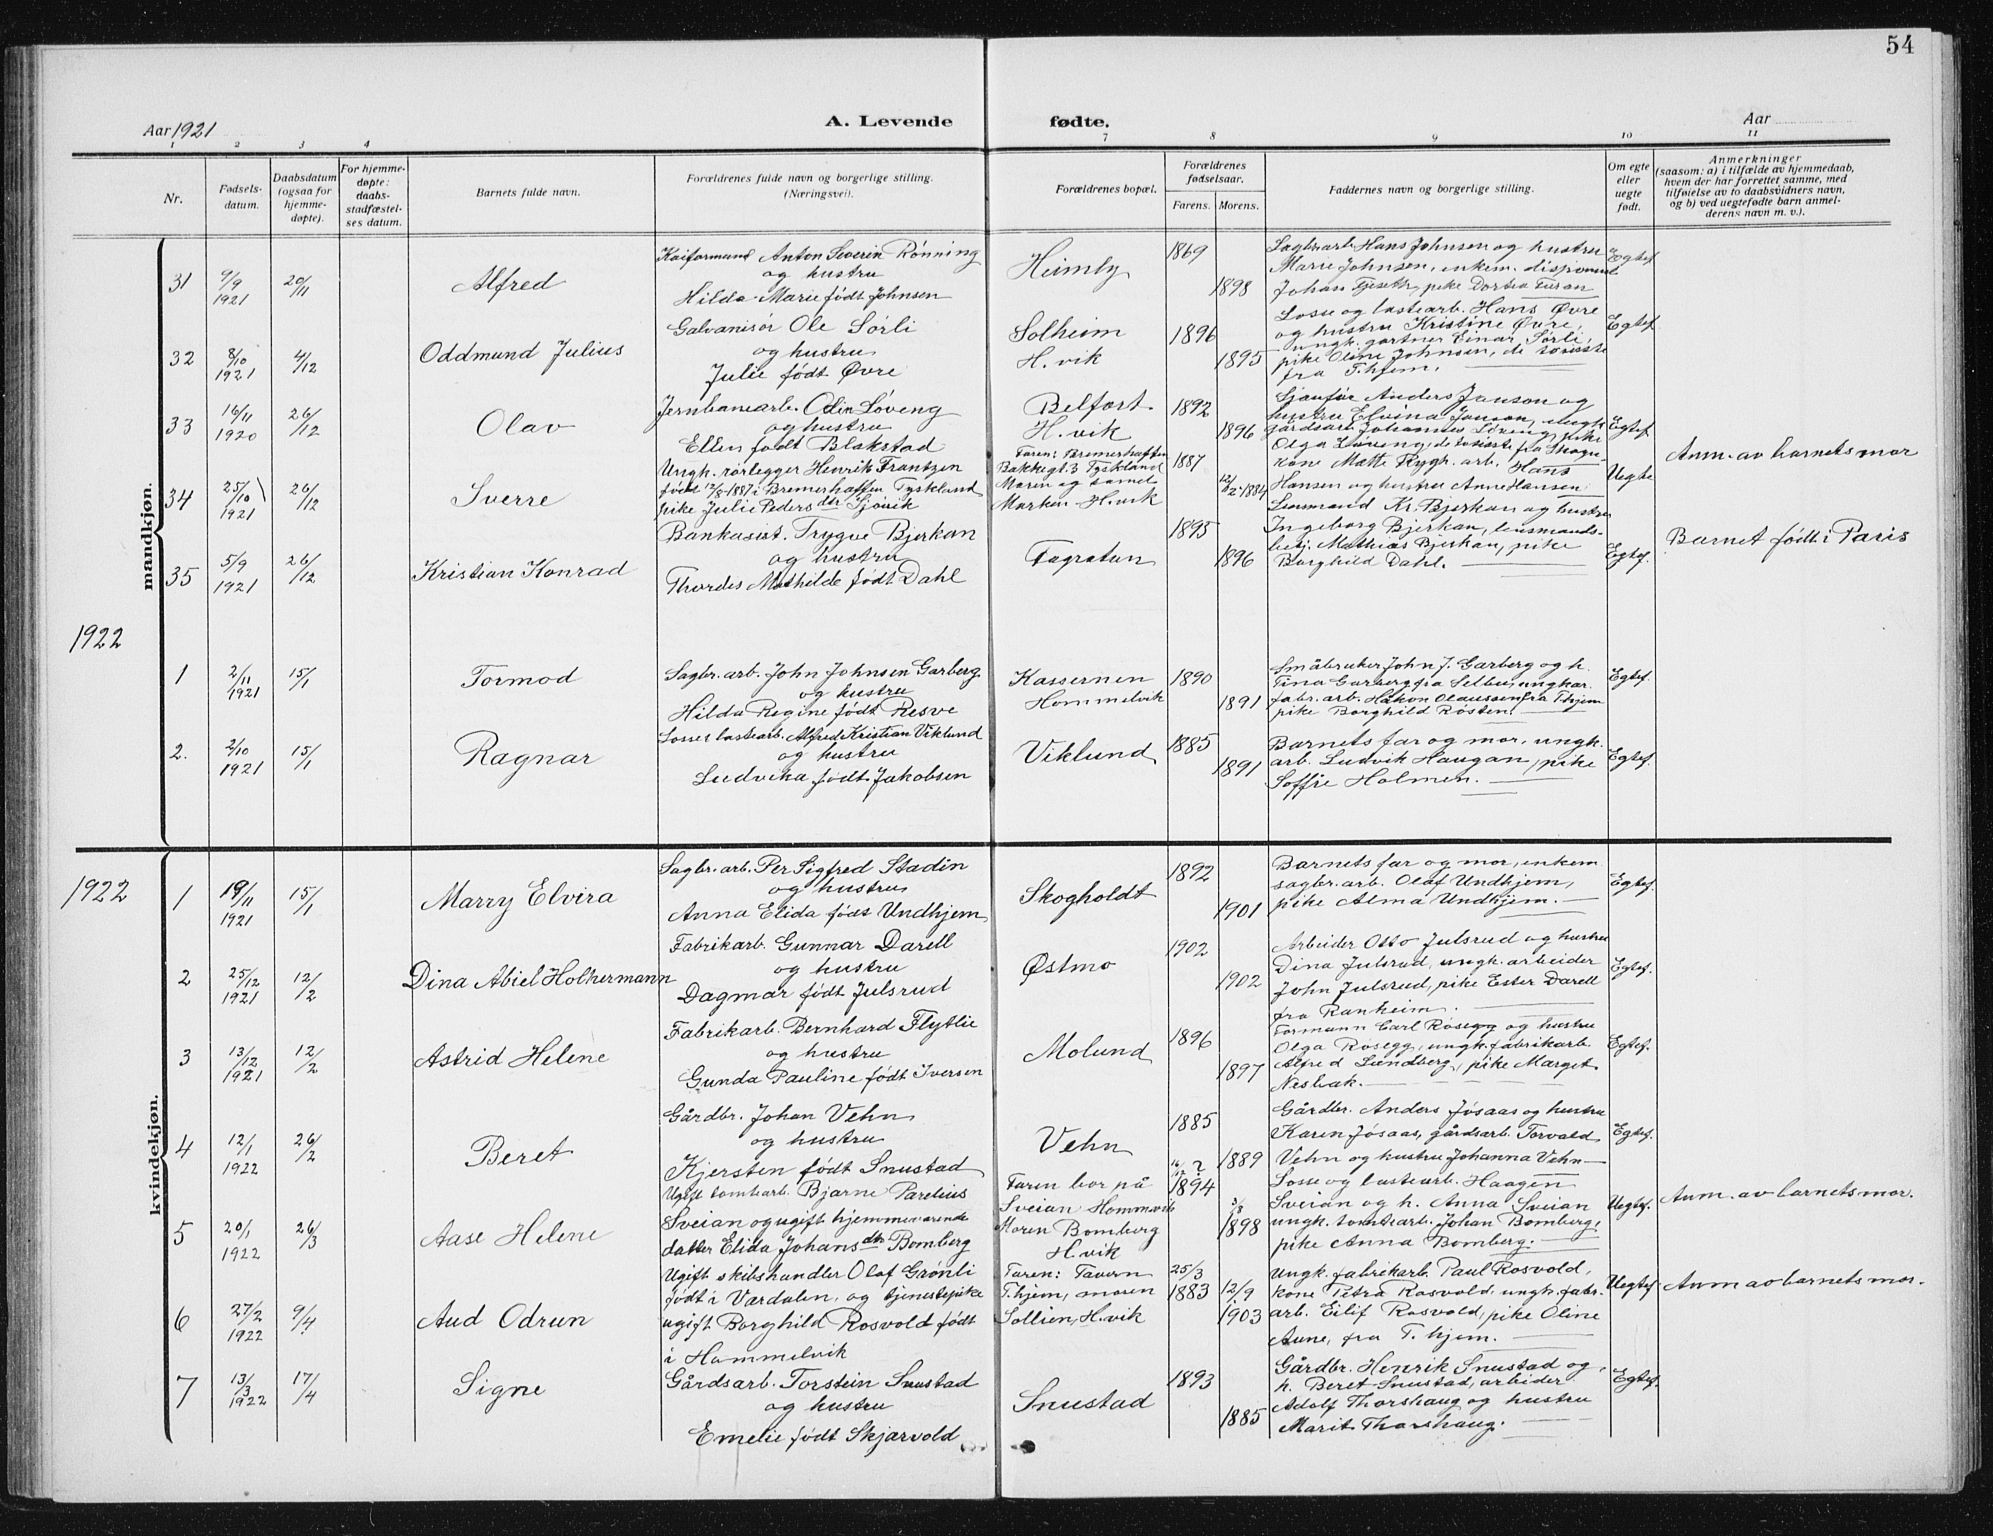 54
Aar 1921
A. Levende fødte.
Aar
1 2 3 4 7 8 9 10 11
Nr.
Fødsels-
datum.
Daabsdatum
(ogsaa for
hjemme-
døpte).
For hjemme-
døpte:
daabs-
stadfæstel-
ses datum.
Barnets fulde navn.
Forældrenes fulde navn og borgerlige stilling.
(Næringsvei).
Forældrenes bopæl.
Forældrenes
fødselsaar.
Farens. Morens.
Faddernes navn og borgerlige stilling.
Om egte
eller
uegte
født.
Anmerkninger
(saasom: a) i tilfælde av hjemmedaab,
hvem der har forrettet samme, med
tilføielse av to daabsvidners navn,
og b) ved uegtefødte barn anmel-
derens navn m. v.).
mandkjøn.
31
9/9
1921
20/11
Alfred
Kaiformand Anton Severin Rønning
og hustru
Hilda Marie født Johnsen
Heimly
1869
1898
Sagbr.arb. Hans Johnsen og hustru
Marie Johnsen, enkem. disponent
Johan Gjeseth, pike Dortea Furan
Egtef.
32
8/10
1921
4/12
Oddmund Julius
Galvanisør Ole Sørli
og hustru
Julie født Øvre
Solheim
H.vik
1896
1895
Losse og lastearb. Hans Øvre
og hustru Kristine Øvre,
ungk. gartner Einar Sørli,
pike Oline Johnsen, de to sidste
fra T.hjem.
Egtef.
33
16/11
1920
26/12
Olav
Jernbanearb. Odin Løveng
og hustru
Ellen født Blakstad
Belfort
H.vik
1892
1896
Sjaufør Anders Janson og
hustru Elvina Janson, ungk.
gårdsarb. Johannes Løveng, pike
Olga Løveng, de to sidste fra Skogn
Egtef.
34
25/10
1921
26/12
Sverre
Ungk. rørlegger Henrik Frantzen
født 12/8-1887 i Bremerhaffen Tyskland
pike Julie Pedersdtr Sjøvik
Faren: Bremerhaffen
Bakkegt. 3 Tyskland
Moren og barnet
Marken H.vik
1887
12/12-1884
Kone Matte Rygh. arb. Hans
Hansen og hustru Anne Hansen
Uegte
Anm. av barnets mor
35
5/9
1921
26/12
Kristian Konrad
Bankasist. Trygve Bjerkan
og hustru
Thordes Mathilde født Dahl
Fagratun
1895
1896
Lensmand Kr. Bjerkan og hustru
Ingeborg Bjerkan, lensmands-
betj. Mathias Bjerkan, pike
Borghild Dahl.
Egtef.
Barnet født i Paris
1922
1
2/11
1921
15/1
Tormod
Sagbr. arb. John Johnsen Garberg
og hustru
Hilda Regine født Resve
Kassernen
Hommelvik
1890
1891
Småbruker John J. Garberg og h.
Tina Garberg fra Selbu, ungkar
fabr. arb. Håkon Olaussen fra T.hjem
pike Borghild Røsten.
Egtef.
2.
2/10
1921
15/1
Ragnar
Losse & lastearb. Alfred Kristian Viklund
og hustru
Ludvika født Jakobsen
Viklund
1885
1891
Barnets far og mor, ungk.
arb. Ludvik Haugan, pike
Soffie Holmen.
Egtef.
1922
kvindekjøn.
1
19/11
1921
15/1
Marry Elvira
Sagbr. arb. Per Sigfred Stadin
og hustru
Anna Elida født Undhjem
Skogholdt
1892
1901
Barnets far og mor, enkem
sagbr. arb. Olaf Undhjem,
pike Alma Undhjem.
Egtef.
2
25/12
1921
12/2
Dina Abiel Holthermann
Fabrikarb. Gunnar Darell
og hustru
Dagmar født Julsrud
Østmo
1902
1902
Arbeider Otto Julsrud og hustru
Dina Julsrud, ungk. arbeider
John Julsrud, pike Ester Darell
fra Ranheim.
Egtef.
3
13/12
1921
12/2
Astrid Helene
Fabrikarb. Bernhard Flytlie
og hustru
Gunda Pauline født Iversen
Molund
1896
1897
Formann Carl Rosegg og hustru
Olga Rosegg, ungk. fabrikarb.
Alfred Lundberg, pike Marget
Nesbak.
Egtef.
4
12/1
1922
26/2
Beret
Gårdbr. Johan Vehn
og hustru
Kjersten født Snustad
Vehn
1885
1889
Gårdbr. Anders Jøsaas og hustru
Karen Jøsaas, gårdsarb. Torvald
Vehn og hustru Johanna Vehn
Egtef.
5
20/1
1922
26/3
Aase Helene
Ugift tomtearb. Bjarne Parelius
Sveian og ugift hjemmeværende
datter Elida Johansdtr Bomberg
Faren bor på
Sveian Hommvik
Moren Bomberg
H.vik
1894
3/8
1898
Losse og lastearb. Haagen
Sveian og h. Anna Sveian
ungk. tomtearb. Johan Bomberg,
pike Anna Bomberg.
Uegtef.
Anm. av barnets mor.
6
27/2
1922
9/4
Aud Odrun
Ugift skibshandler Olaf Grønli
født i Værdalen, og tjenestepike
ugift Borghild Rosvold født
i Hommelvik
Faren: Tavern
T.hjem, moren
Sollien, H.vik
25/3
1883
12/9
1903
Ungk. fabrikarb. Paul Rosvold,
kone Petra Rosvold, ungk. fabr.
arb. Eilif Rosvold, pike Oline
Aune, fra T.hjem.
Uegtef.
Anm av barnets mor.
7
13/3
1922
17/4
Signe
Gårdsarb. Torstein Snustad
og hustru
Emelie født Skjarvold
Snustad
1893
1885
Gårdbr. Henrik Snustad og
h. Beret Snustad, arbeider
Adolf Thorshaug og hustru
Marit Thorshaug.
Egtef.